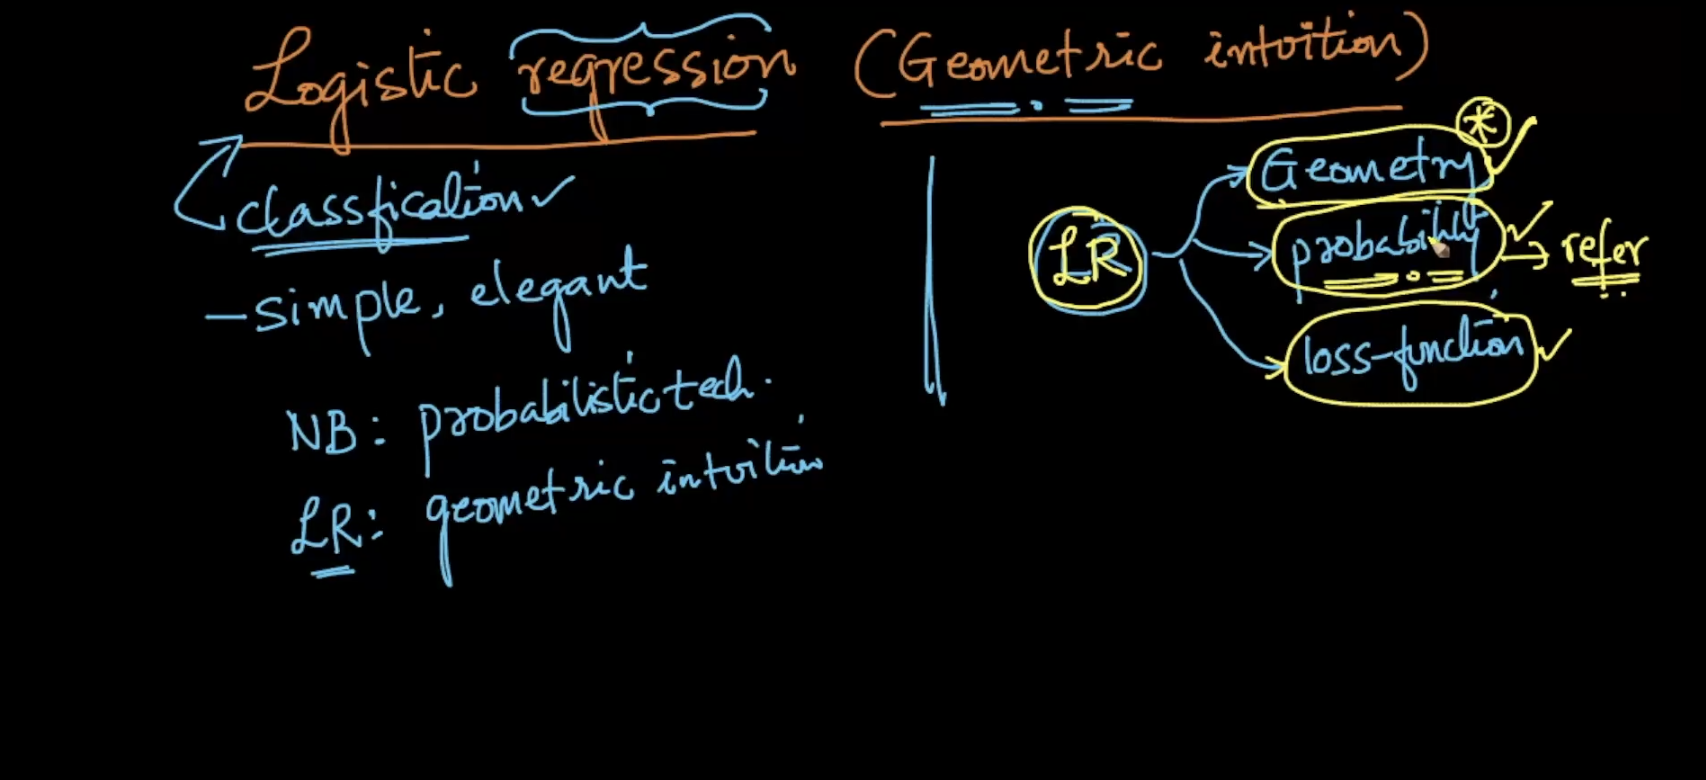 Logistic regression (Geometric intuition)
classfication
- simple, elegant
NB: probabilistic tech.
LR: geometric intuition
LR
Geometry *
probability → refer
loss-function